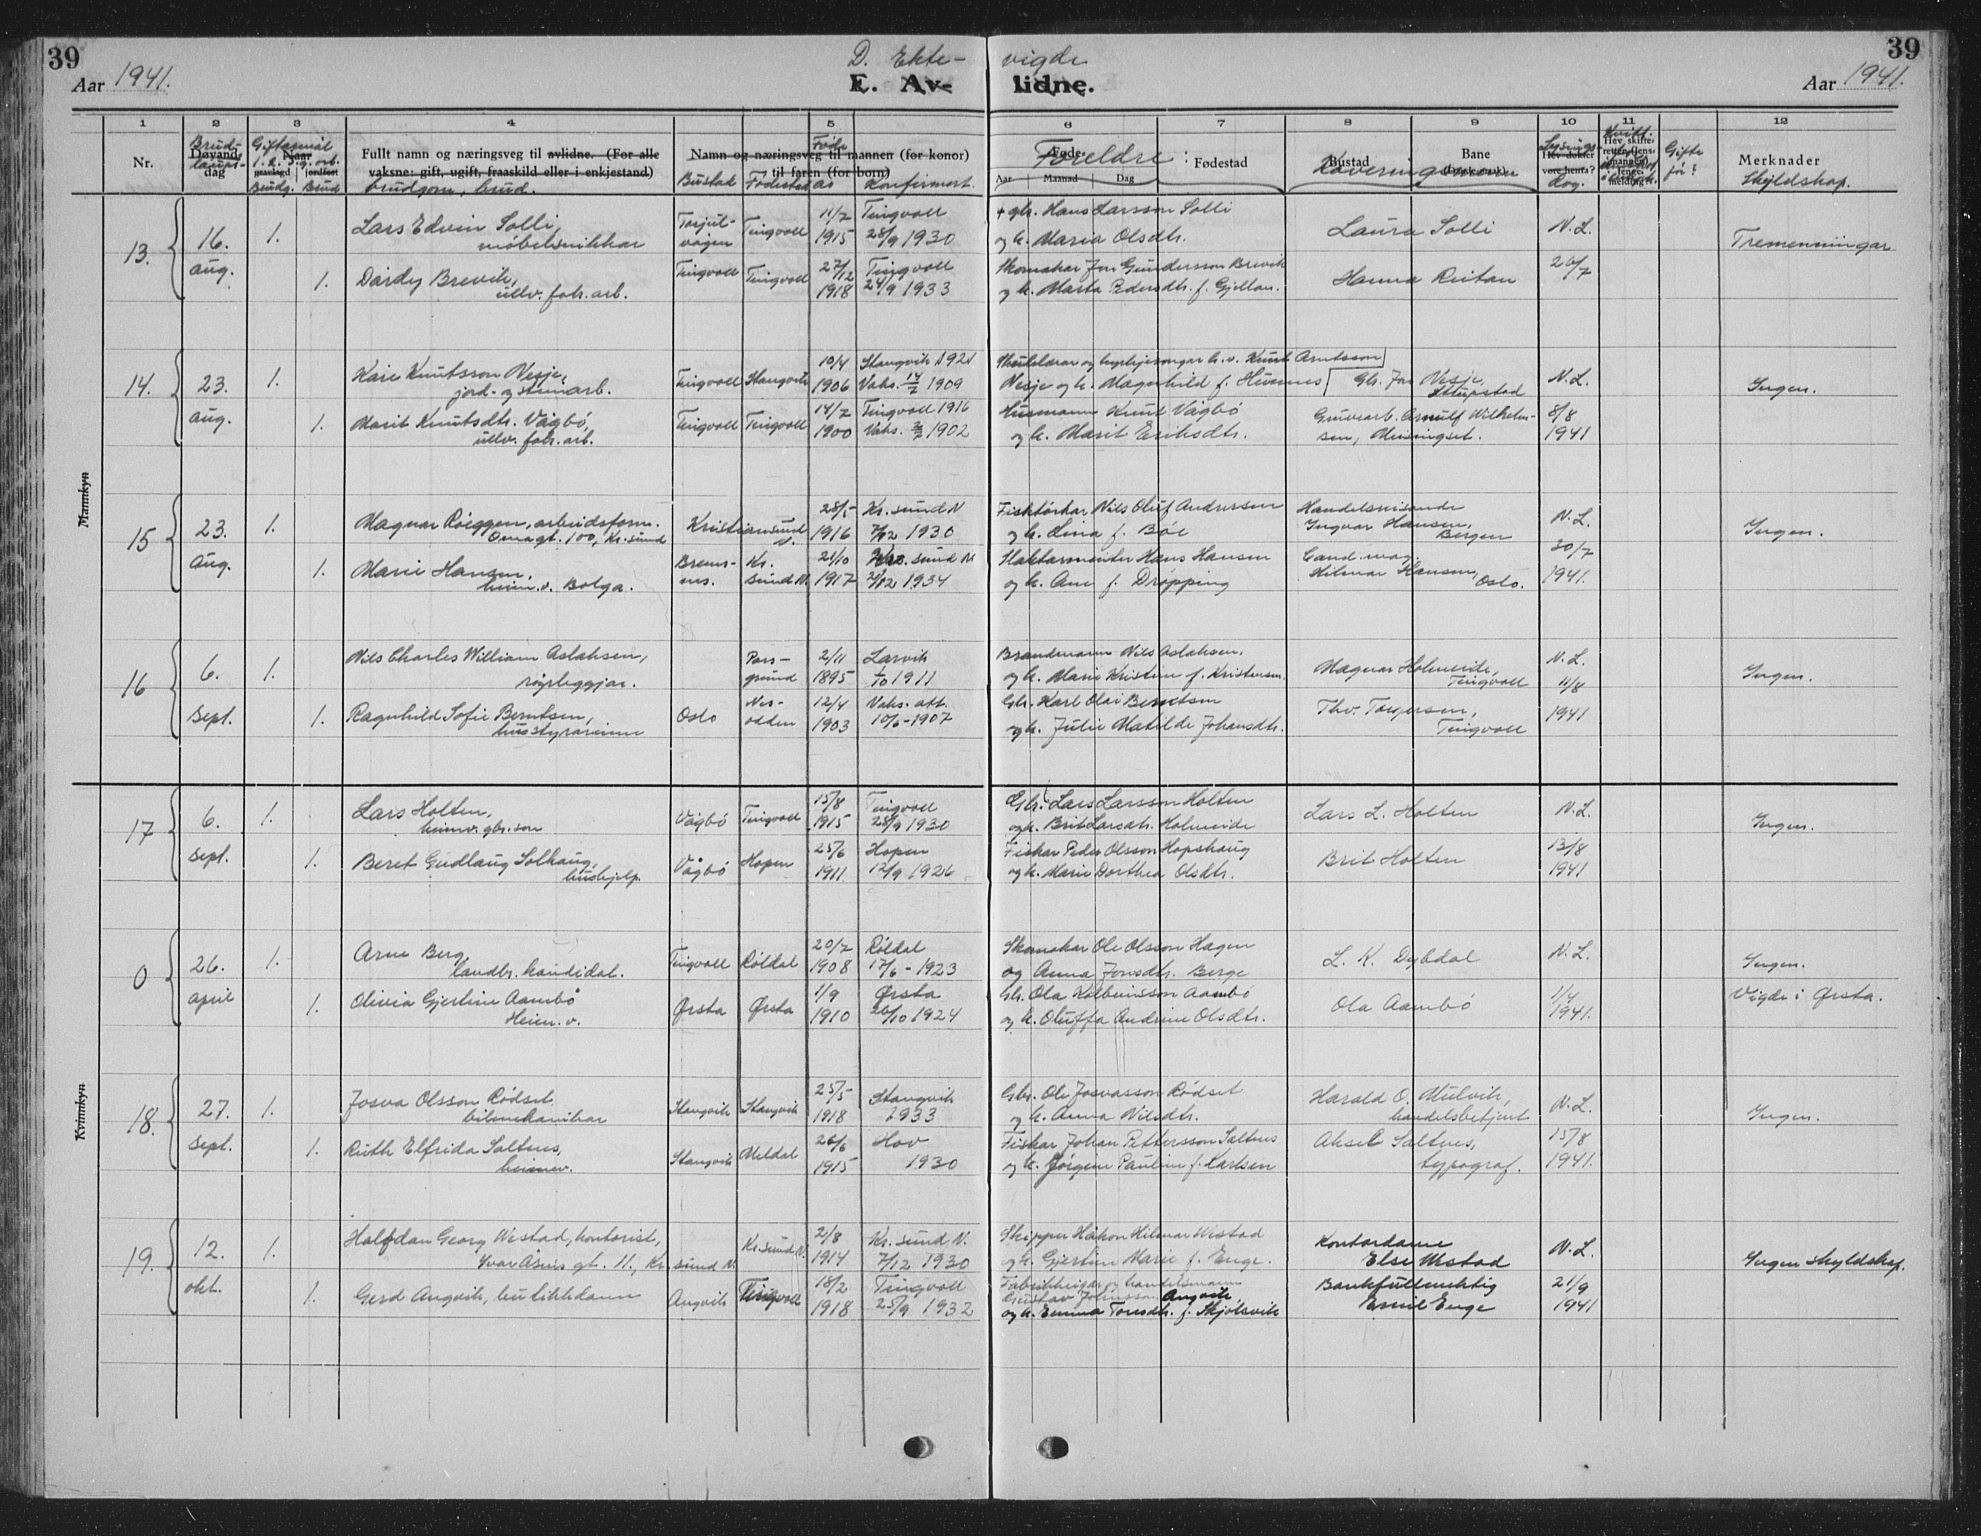 39
Aar 1941.
D. Ekte- vigde
E. Av- lidne.
39
Aar 1941.
1 2 3 4 5 6 7 8 9 10 11 12
Nr.
Brudlaups-
Døyand-
dag
Giftarmål
Naar
Brudg. Brud
Fullt namn og næringsveg til avlidne. (For alle
vaksne: gift, ugift, fraaskild eller i enkjestand)
brudgom, brud.
Namn og næringsveg til mannen (for konor)
til faren (for born)
Bustad Fødestad Føde år Konfirmert.
Føde.
Aar Maanad Dag
Foreldre :
Fødestad
Bustad
Bane
Hev dokter
vore henta?
Gifte før?
Merknader
Skyldskap.
Mannkyn
13.
16. aug.
1.
Lars Edvin Solli,
møbelsnikkar
Tingvoll
11/2 1915
Tingvoll 28/9 1930
+ gbr. Hans Larsson Solli
og k. Maria Olsdtr.
Laura Solli
N.L.
26/7
Tremenningar
1.
Dordy Brevik,
ullv. fabr. arb.
Tingvoll
Tingvoll
27/12 1918
Tingvoll 24/9 1933
Skomakar Jon Gundersson Brevik
og k. Marta Pedersdtr. f. Gjellan.
Hanna Reitan
14.
23. aug.
1.
Kåre Knutsson Nesje,
jord- og steinarb.
Tingvoll
Stangvik
10/4 1906
Stangvik 1921
Vaks. 14/2 1909
Skulelærar og kyrkjesongar k. v. Knut Arntsson
Nesje og k. Magnhild f. Husnes
Gbr. Jon Nesje,
N.L.
Ingen.
1.
Marit Knutsdtr. Vågbø,
ullv. fabr. arb.
Tingvoll
Tingvoll
14/2 1900
Tingvoll 1916
Vaks. 1902
Husmann Knut Vågbø
og k. Marit Eriksdtr.
Gruvearb. Arnulf Wilhelm-
sen, Meisingset.
8/8 1941
15
23. aug.
1.
Magnar Røeggen, arbeidsform.
Omagt. 100, Kr.sund
Kristiansund N.
1916
Kr.sund N
7/12 1930
Fisktørkar Nils Oluf Andreassen
og k. Lina f. Böe
Handelsreisande
Ingvar Hansen,
Bergen
N.L.
30/7
1941.
Ingen.
1.
Marie Hansen,
heim. v. Bolga.
Brems-
nes.
Kr.
sund N.
21/10 1917
Kr. sund N
2/12 1934
Havnarmeister Hans Hansen
og k. Ane f. Dropping
Cand. mag.
Hilmar Hansen,
Oslo.
16
6. Sept.
1.
Nils Charles William Aslaksen,
røyrleggjar.
Pors-
grund
2/11 1895
Larvik
1/10 1911
Brandmann Nils Aslaksen,
og k. Marie Kristine f. Kristensen
Magnar Holmeide,
Tingvoll
N.L.
11/8
1941
Ingen.
1.
Ragnhild Sofie Berntsen,
husstyrarinne
Oslo
Nes-
odden
12/4 1903
Vaks. att.
10/6 - 1907
Gbr. Karl Olai Berntsen
og k. Julie Matilde Johansdtr.
Thv. Torgersen,
Tingvoll
17
6. sept.
1.
Lars Holten,
heimv. gbr. son
Vågbø
Tingvoll
15/8 1915
Tingvoll
28/9 1930
Gbr. Lars Larsson Holten
og k. Brit Larsdtr. Holmeide
Lars L. Holten
N.L.
13/8
1941
Ingen.
1.
Beret Gudlaug Solhaug,
hushjelp.
Vågbø
Hopen
25/6 1911.
Hopen
12/9 1926
Fiskar Peder Olsson Hopshaug
og k. Marie Dorthea Olsdtr.
Brit Holten
0
26. april
1.
Arne Berg
landbr. kandidat.
Tingvoll
Røldal
20/2 1908
Røldal
17/6 - 1923
Skomakar Ole Olsson Hagen
og Anna Jonsdtr. Berge
L. K. Dybdal
N.L.
1/4
1941.
Ingen.
Vigde i Ørsta.
1.
Olivia Gjertine Aambø
Heim. v.
Ørsta
Ørsta
1/9 1910
Ørsta
26/10 1924
Gbr. Ola Kolbeinsson Aambø
og k. Oluffa Andrine Olsdtr.
Ola Aambø
Kvinnkyn
18.
27. sept.
1.
Josva Olsson Rødset
bilmekanikar
Stangvik
Stangvik
25/5 1918
Stangvik
1933
Gbr. Ole Josvasson Rødset
og k. Anna Nilsdtr.
Harald O. Mulvik,
handelsbetjent
N.L.
15/8
1941.
Ingen.
1.
Ruth Elfrida Saltnes,
heimev.
Stangvik
Meldal
26/6 1915
Hov
1930
Fiskar Johan Pettersson Saltnes
og k. Jørgine Pauline f. Karlsen
Aksel Saltnes,
typograf.
19.
12. okt.
1.
Halfdan Georg Vestad, kontorist,
Ivar Åsens gt. 11., Kr.sund N.
Kr.sund N.
2/8 1914
Kr. sund N.
7/12 1930
Skipper Håkon Hilmar Vestad
og k. Gjertine Marie f. Enge.
Kontordame
Else Vestad
N.L.
21/9
1941
Ingen skyldskap.
1.
Gerd Angvik, butikkdame
Angvik
Tingvoll
18/2 1918
Tingvoll
25/9 1932
Fabrikkeigar og handelsmann
Gustav Johansson Angvik
og k. Emma Toresdtr. f. Skjølsvik
Bankfullmektig
Emil Enge